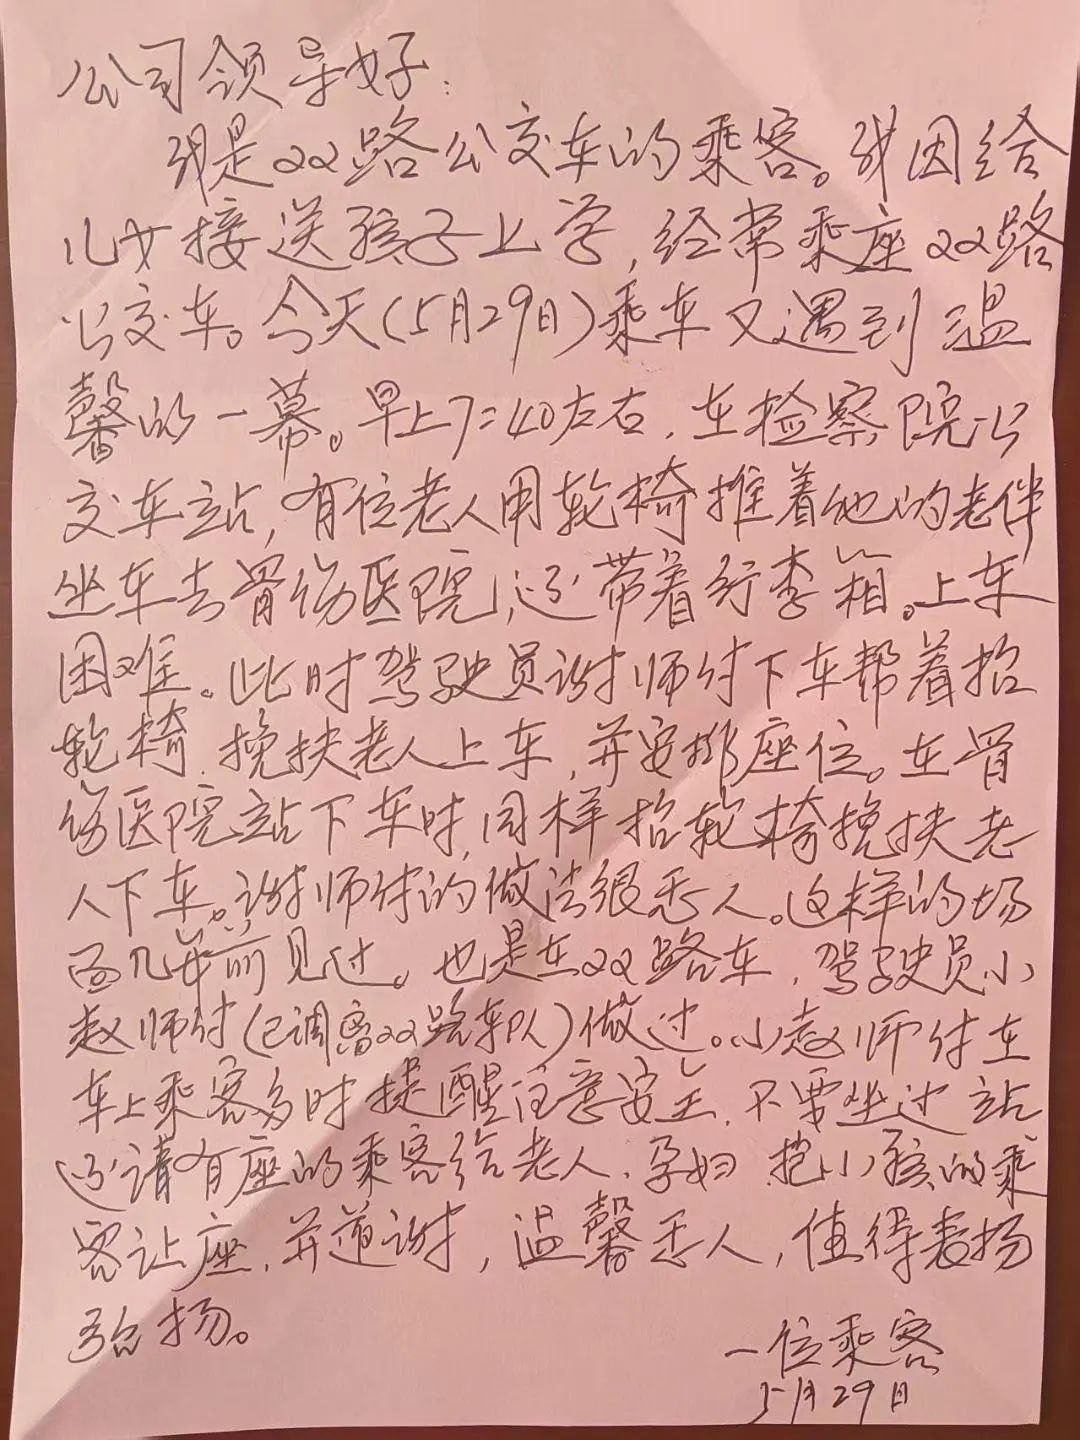 公司领导好:
我是22路公交车的乘客。我因给
儿女接送孩子上学,经常乘座22路
公交车。今天(5月29日)乘车又遇到温
馨的一幕。早上7:40左右,在检察院公
交车站,有位老人用轮椅推着他的老伴
坐车去骨伤医院,还带着行李箱。上车
困难。此时驾驶员谢师付下车帮着抬
轮椅,挽扶老人上车,并安排座位。在骨
伤医院站下车时,同样抬轮椅挽扶老
人下车。谢师付的做法很感人。这样的场
面几年前见过。也是在22路车,驾驶员小
赵师付(已调离22路车队)做过。小赵师付在
车上乘客多时提醒注意安全,不要坐过站
还请有座的乘客给老人、孕妇、抱小孩的乘
客让座,并道谢,温馨感人,值得表扬
弘扬。
一位乘客
5月29日